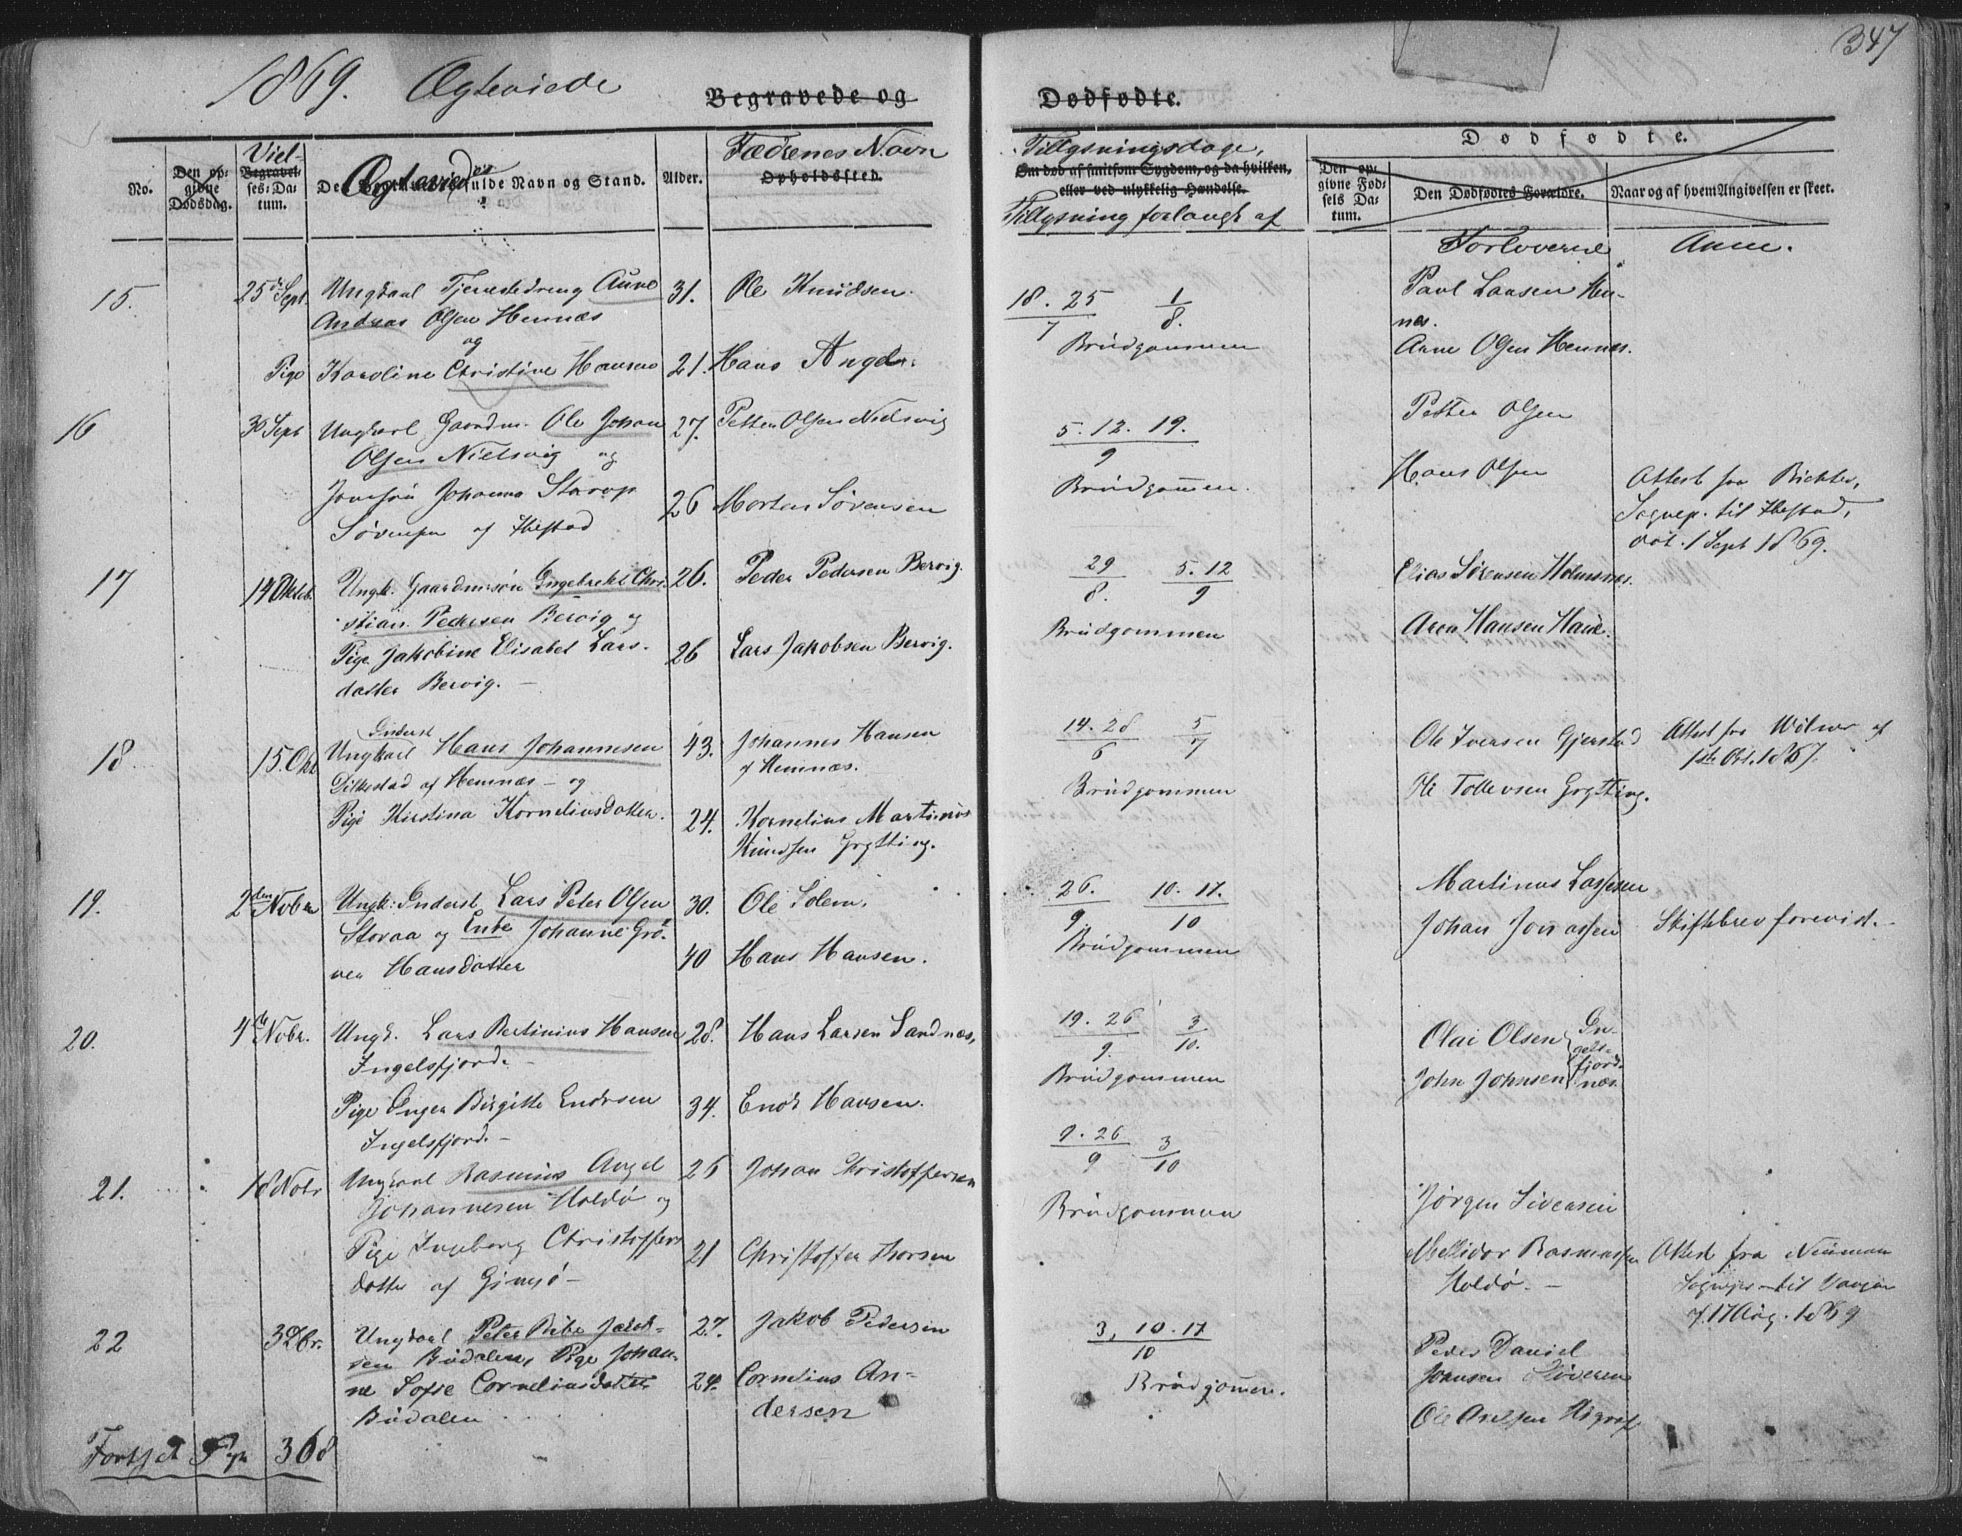 347
1869. Ægteviede
Begravede og Dødfødte.
No.
Den opgivne Dødsdag.
Viel-
Begravelses-Datum.
Ægtevied
Navn og Stand.
Alder.
Fædrenes Navn
Opholdssted.
Tillysningsdage,
Om død af smitsom Sygdom, og da hvilken,
eller ved ulykkelig Hændelse.
Tillysning forlangt af
Dødfødte.
Den opgivne Fødsels Datum.
Den Dødfødtes Forældre.
Naar og af hvem Angivelsen er skeet.
Forloverne
Anm.
15. 25 Sept Ungkarl Tjenestedreng Aune 31. Ole Knudsen. 18. 25/7 1/8. Paul Larsen Hen-
Andreas Olsen Hennæs nes.
og Brudgommen Aune Olsen Hennes.
Pige Karoline Christine Hansen 21. Hans Angel.
16 30 Sept Ungkarl Gaardm. Ole Johan 27. Petter Olsen Nielsvig 5. 12. 19./9 Petter Olsen
Olsen Nielsvig og Brudgommen. Hans Olsen
Jomfru Johanna Storop 26 Morten Sørensen Attest fra Richter,
Sørensen af Ibestad Sognep. til Ibestad,
dat. 1 Sept 1869.
17 14 Oktob. Ungk. Gaardmsøn Engebrekt Chri- 26. Peder Pedersen Bervig. 29/8. 5. 12/9 Elias Sørensen Holmnes.
stian Pedersen Bervig og Brudgommen Aron Hansen
Pige Jakobine Elisabet Lars- 26 Lars Jakobsen Bervig.
datter Bervig. —
18 15. Okt Inderst
Ungkarl Hans Johannesen 43. Johannes Hansen 14. 28/6 5/7 Ole Iversen Gjerstad Attest fra af
af Hemnæs — og af Hemnæs. Brudgommen Ole Tollevsen Grytting. 1867.
Pige Kirstina Korneliusdatter. 24. Kornelius Martinus
Knudsen Grytting.
19. 2den Nobr Ungk: Inderst Lars Peter Olsen 30. Ole Solem. 26./9 10. 17./10 Martinus Lassesen
Storaa og Enke Johanne Grø- Brudgommen Johan Jonassen Skiftebrev forevist.
ver Hansdatter 40 Hans Hansen.
20. 4de Nobr. Ungk. Lars Bertinius Hansen 28. Hans Larsen Sandnæs, 19. 26/9. 3/10. Olai Olsen
Ingelsfjord. — Brudgommen John Johnsen
Pige Inger Birgitte Endrsen 34. Enok Hansen.
Ingelsfjord. —
21. 18 Nobr Ungkarl Rasmus Angel 26 Johan Christoffersen 9. 26/9 3/10
Johannesen Holdø og Brudgommen Jørgen Sivensen
Pige Ingeborg Christoffers 21 Christoffer Thorsen Rasmussen Attest fra Neuman
datter af Gimsø — Holdø. — til Vaagan
17 Aug. 1869
22 3 Dbr. Ungkarl Peter Jakob- 27. Jakob Pedersen 3, 10. 17/10 Peder Daniel
sen Budalen, Pige Johan- Brudgommen. Johnsen
ne Sofie Corneliusdatter 24. Cornelius An-
Budalen dersen
Forts. Pag 368